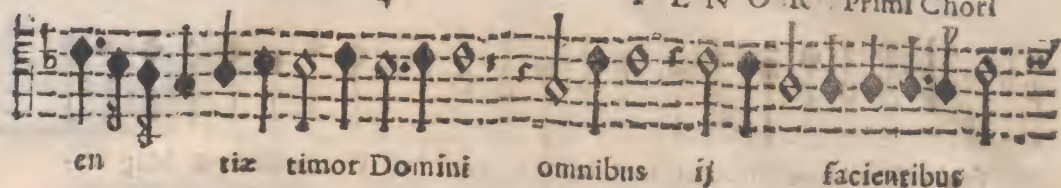 TENOR Primi Chori
en tiæ timor Domini omnibus ij facientibus